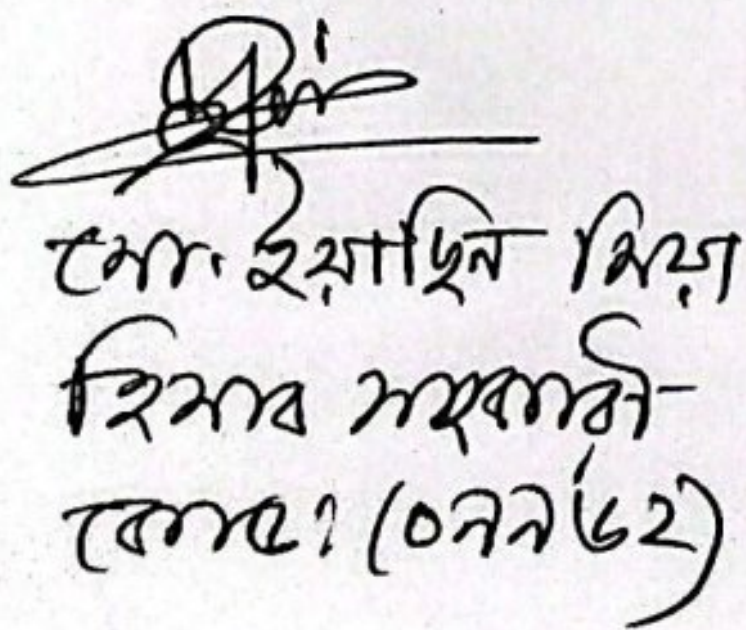 মো. ইয়াছিন মিয়া
হিসাব সহকারী
কোড: (০৯৯৬২)